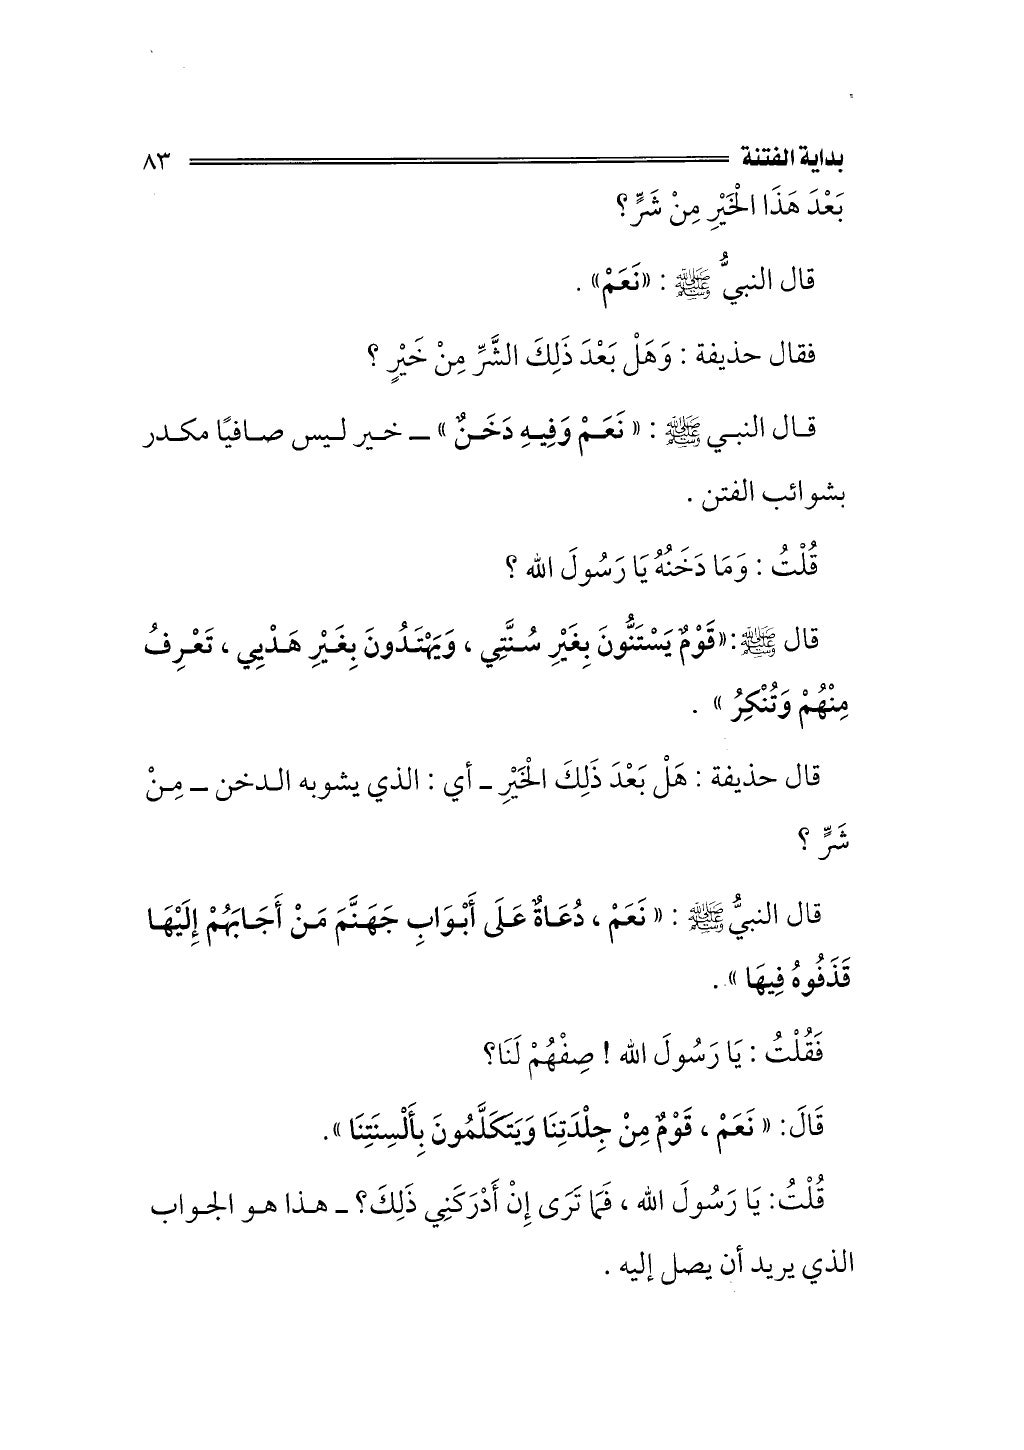 بداية الفتنة ٨٣
بَعْدَ هَذَا الْخَيْرِ مِنْ شَرٍّ؟
قال النبيُّ ﷺ : «نَعَمْ» .
فقال حذيفة : وَهَلْ بَعْدَ ذَلِكَ الشَّرِّ مِنْ خَيْرٍ ؟
قـال النبـي ﷺ : « نَعَـمْ وَفِيـهِ دَخَـنٌ » ــ خـير لـيس صـافيًا مكـدر
بشوائب الفتن .
قُلْتُ : وَمَا دَخَنُهُ يَا رَسُولَ الله ؟
قال ﷺ :«قَوْمٌ يَسْتَنُّونَ بِغَيْرِ سُـنَّتِي ، وَيَهْتَـدُونَ بِغَـيْرِ هَـدْيِي ، تَعْـرِفُ
مِنْهُمْ وَتُنْكِرُ » .
قال حذيفة : هَلْ بَعْدَ ذَلِكَ الْخَيْرِ ـ أي : الذي يشوبه الـدخن ــ مِـنْ
شَرٍّ ؟
قال النبيُّ ﷺ : « نَعَمْ ، دُعَـاةٌ عَلَى أَبْـوَابِ جَهَـنَّمَ مَـنْ أَجَـابَهُمْ إِلَيْهَـا
قَذَفُوهُ فِيهَا » .
فَقُلْتُ : يَا رَسُولَ الله ! صِفْهُمْ لَنَا؟
قَالَ: « نَعَمْ ، قَوْمٌ مِنْ جِلْدَتِنَا وَيَتَكَلَّمُونَ بِأَلْسِنَتِنَا ».
قُلْتُ: يَا رَسُولَ الله ، فَمَا تَرَى إِنْ أَدْرَكَنِي ذَلِكَ؟ ـ هـذا هـو الجـواب
الذي يريد أن يصل إليه .